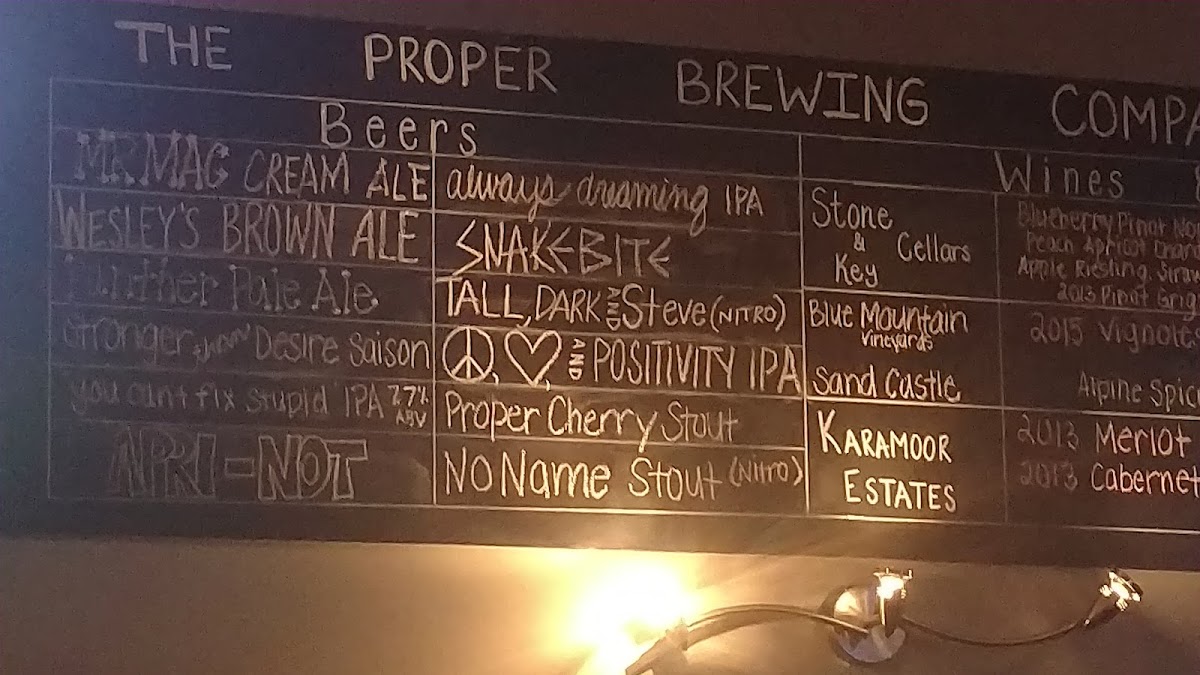 THE PROPER BREWING COMPA
Beers
MR. MAC CREAM ALE
WESLEY'S BROWN ALE
Pale Ale
Stronger than Desire Saison
you can't fix stupid IPA 7.7% ABV
NPRI-NOT
always dreaming IPA
SNAKEBITE
TALL, DARK AND Steve (NITRO)
☮, ♡, AND POSITIVITY IPA
Proper Cherry Stout
NO Name Stout (Nitro)
Wines
Stone & Key Cellars
Blueberry Pinot No
Peach Apricot Chard
Apple Riesling, Straw
2013 Pinot Grig
Blue Mountain Vineyards
2015 Vignole
Sand Castle
Alpine Spic
KARAMOOR ESTATES
2013 Merlot
2013 Cabernet